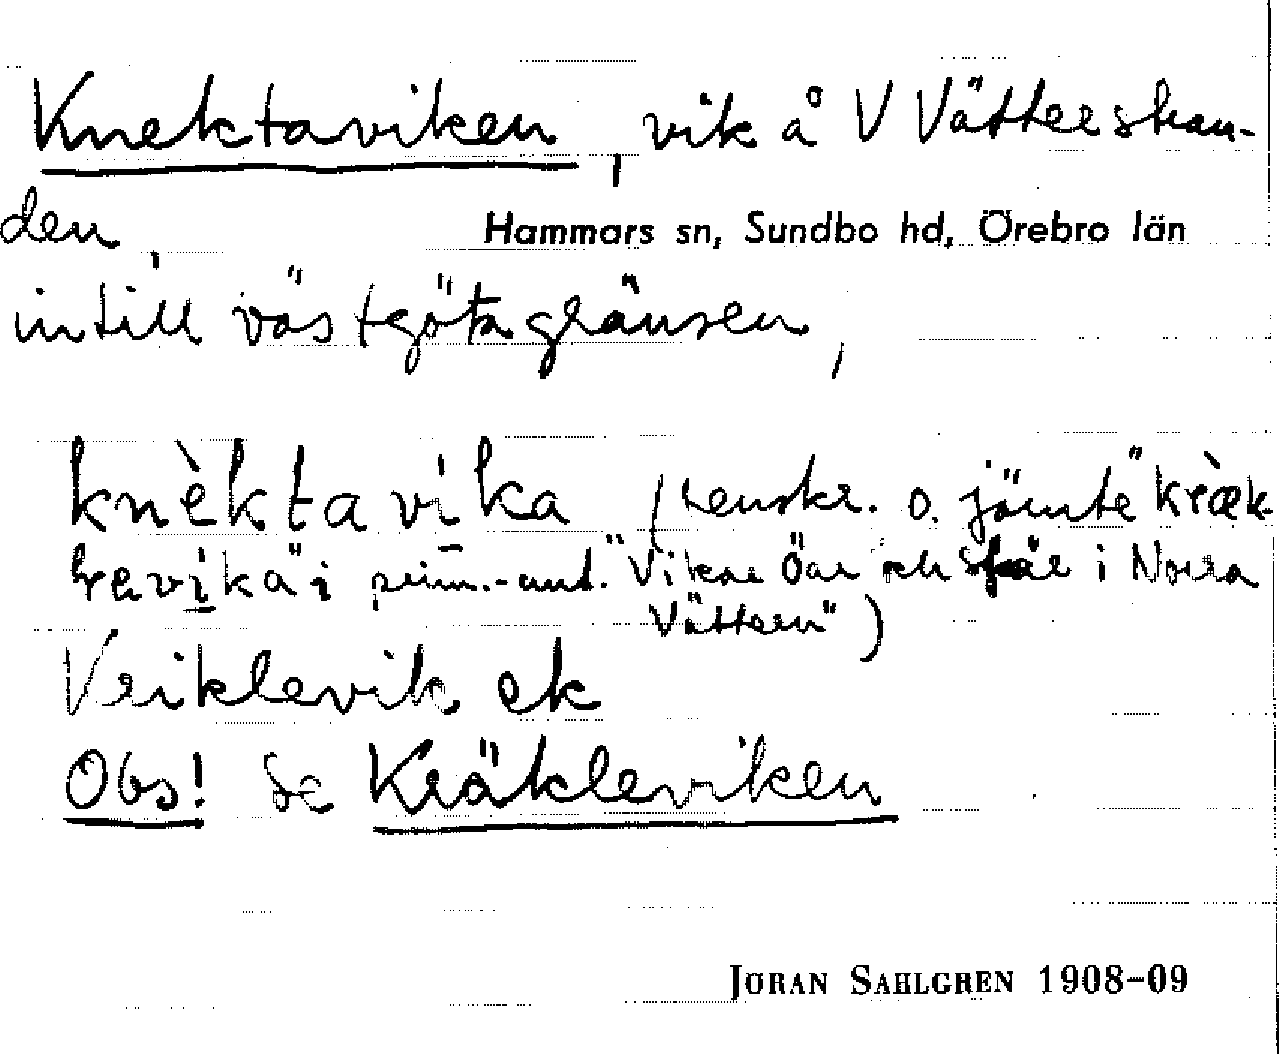 Knektaviken, vik å V Vätterstran-
den,
Hammars sn, Sundbo hd, Örebro län
intill västgötagränsen,
knèktavika (renskr. o. jämte "kræ̀k-
levika" i prim.-ant. "Vikar Öar och skär i Norra
Vättern")
Vriklevik ek
Obs! Se Kräkleviken
JÖRAN SAHLGREN 1908–09